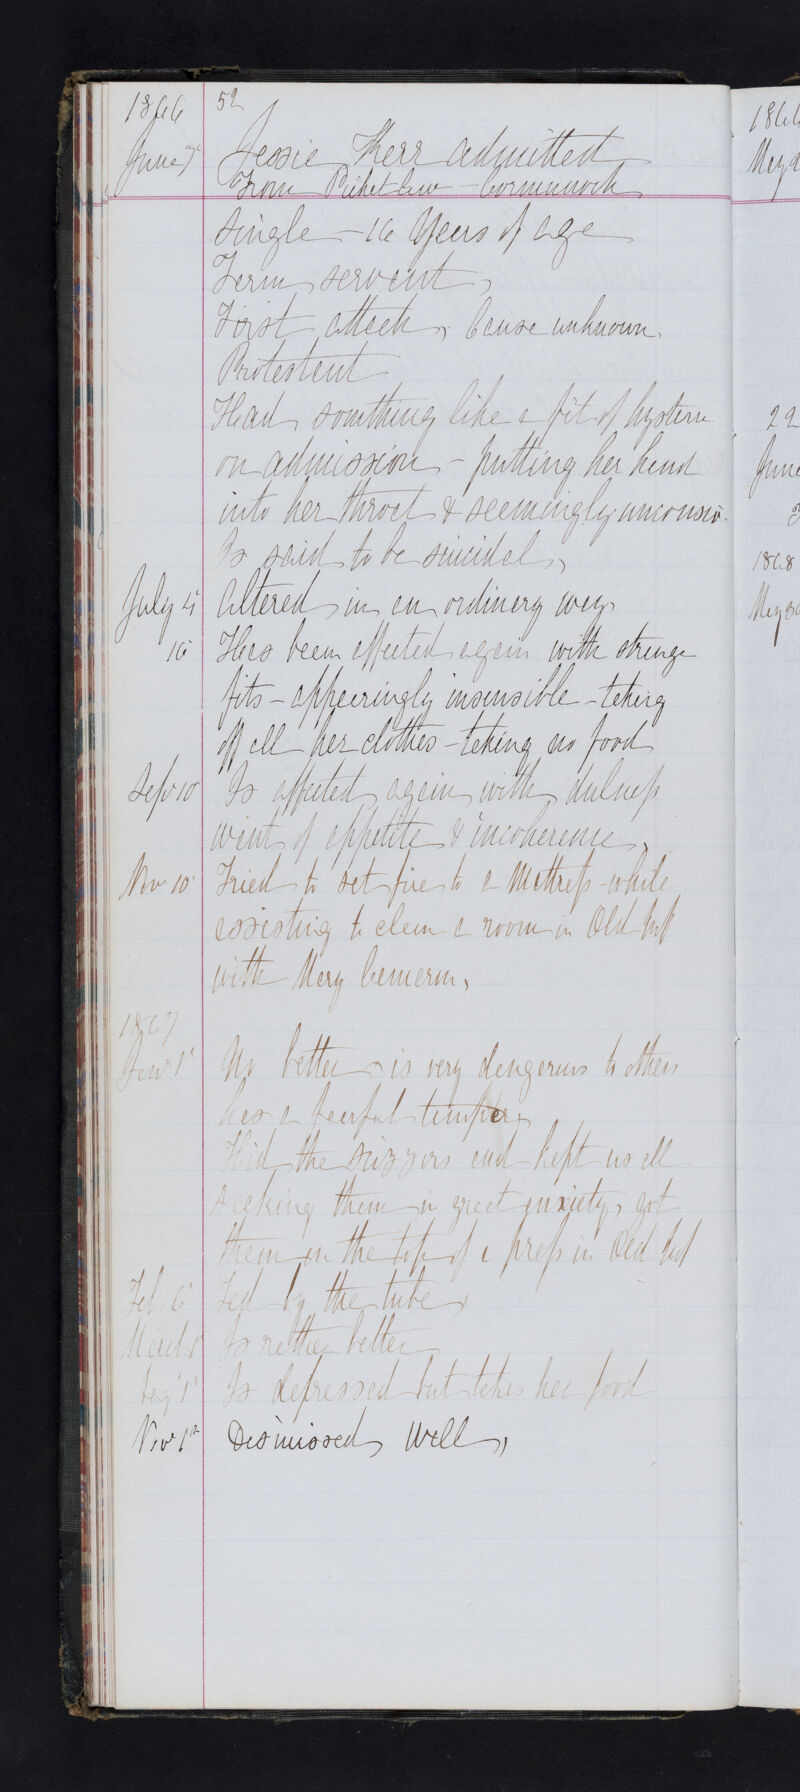 1866 52
June 7 Jessie Kerr admitted
From Picketlaw - Carmunnock
single - 16 years of age
Farm servant,
First attack, Cause unknown.
Protestant
Had something like a fit of hysteria
on admission - putting her hand
into her throat & seemingly unconscio
Is said to be suicidal,
July 4 altered in an ordinary way,
16 Has been affected again with strange
fits - appearingly insensible - taking
off all her clothes - taking no food
Sepr 10 Is affected again with dulness
want of appetite & incoherence,
Nov 10 Tried to set fire to a Mattress - while
assisting to clean a room in Old
with Mary Cameron,
1867
Jany 1st No better - is very dangerous to others
has a fearful temper,
Hid the scissors and kept us all
seeking them in great anxiety, got
them on the top of a press in Old
Feb 6 Fed by the tube,
March 1 Is rather better
Aug 1st Is depressed but takes her food
Nov 1st Dismissed Well,
1866
May
22
June
1868
May